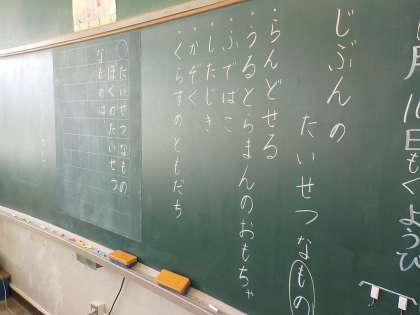 月16日もくようび
じぶんの
たいせつなもの
・らんどせる
・うるとらまんのおもちゃ
・ふでばこ
・したじき
・かぞく
・くらすのともだち
たいせつなもの
ぼくのたいせつ
なものは、